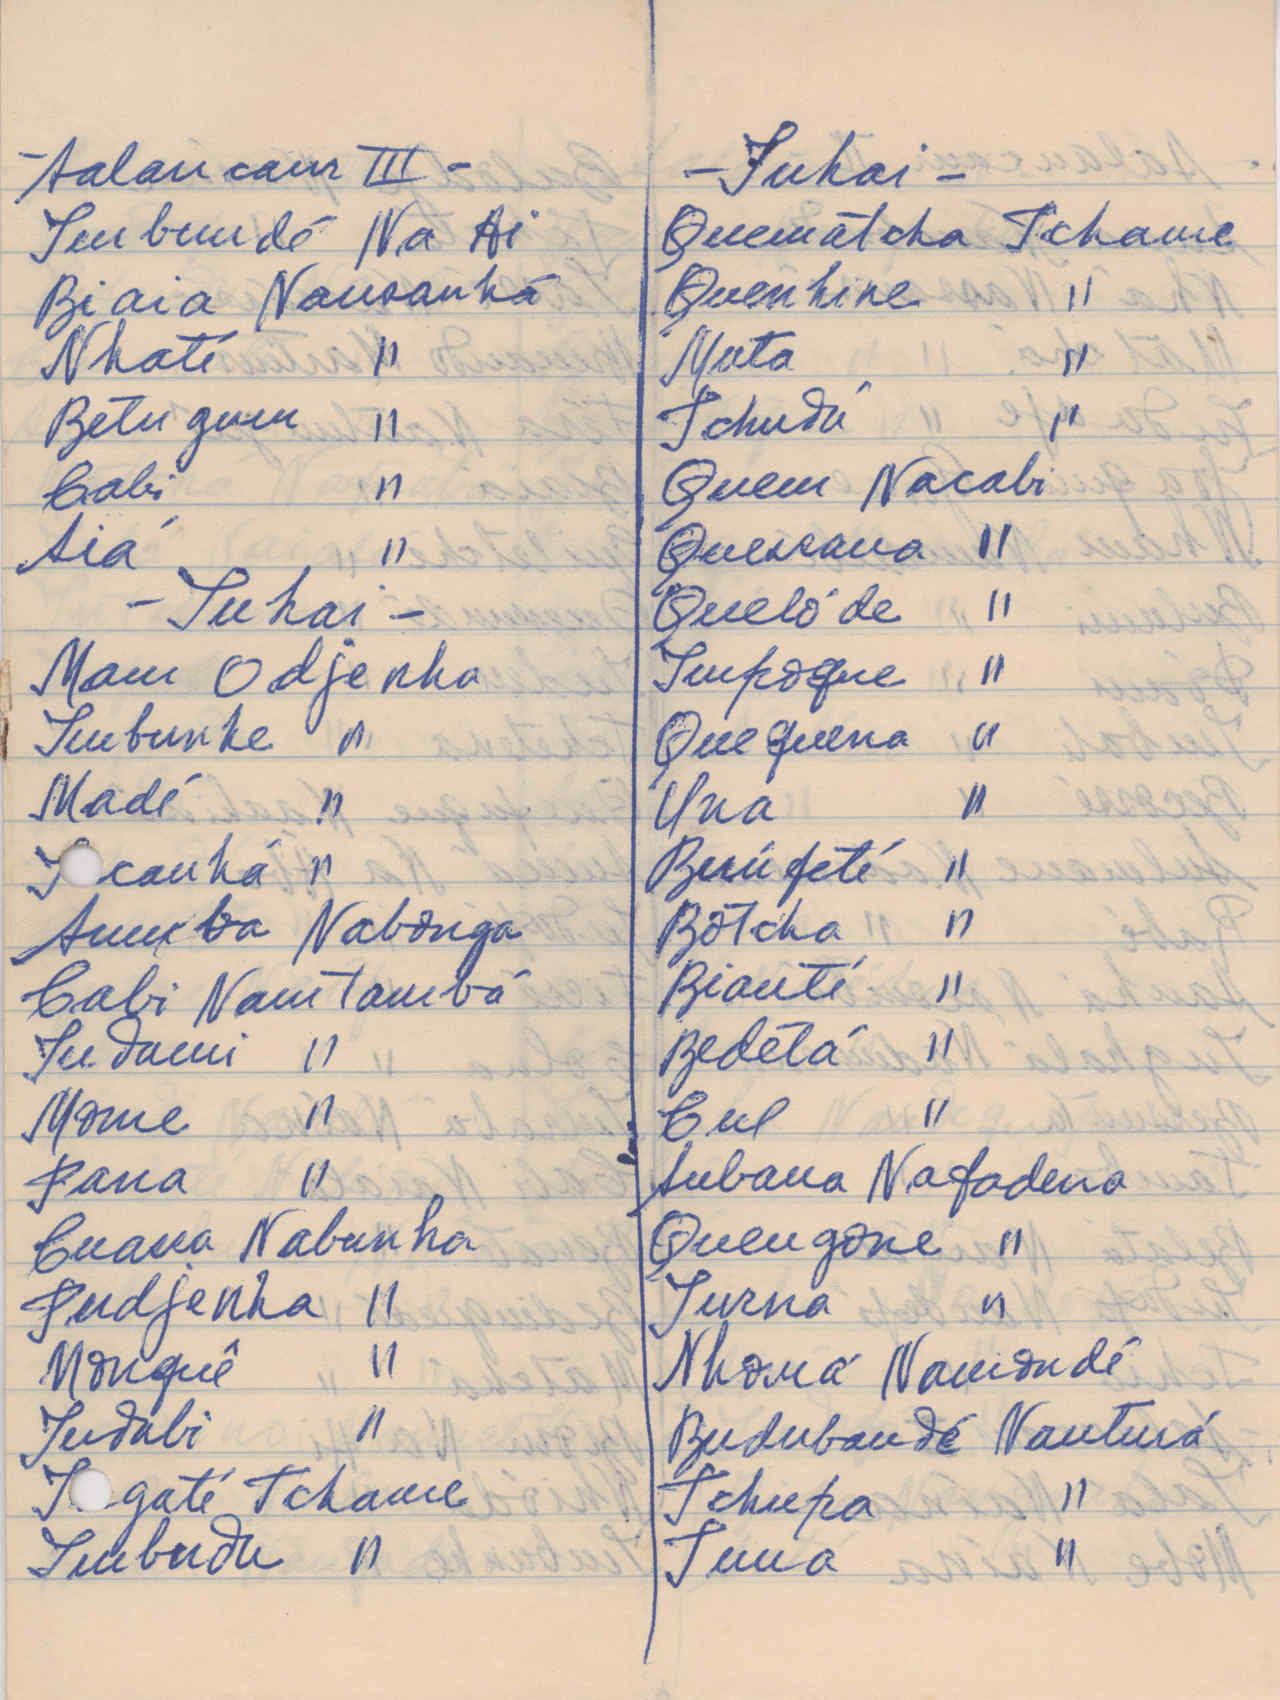 - Aalancam III -
Imbundé Na Ai
Biaia Nansanhá
Nhaté "
Betu gum "
Cabi "
Aiá "
- Inhai -
Mam Odjenha
Imbunhe "
Madé "
I canhá "
Nabonga
Cabi Namtambá
Indami "
Mome "
Fana "
Cuana Nabunha
Fudjenha "
Monquê "
Indubi "
I gaté Tchame
Imbudu "
- Inhai -
Quemátcha Tchame
Quenhine "
Muta "
Tchudú "
Quem Nacabi
Quessana "
Quelóde "
Impoque "
Quequena "
Una "
Binfeté "
Botcha "
Bianté "
Bedetá "
Cul "
Aubana Nafadena
Quengone "
Iurna "
Nhomá Namondé
Budubandé Nanturá
Tchupa "
"